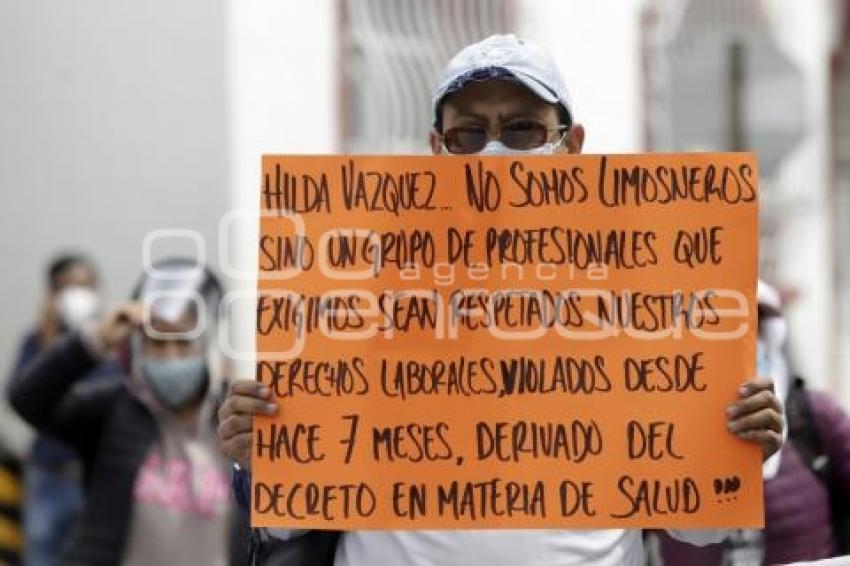 HILDA VAZQUEZ... NO SOMOS LIMOSNEROS
SINO UN GRUPO DE PROFESIONALES QUE
EXIGIMOS SEAN RESPETADOS NUESTROS
DERECHOS LABORALES, VIOLADOS DESDE
HACE 7 MESES, DERIVADO DEL
DECRETO EN MATERIA DE SALUD !!!
agencia
enfoque